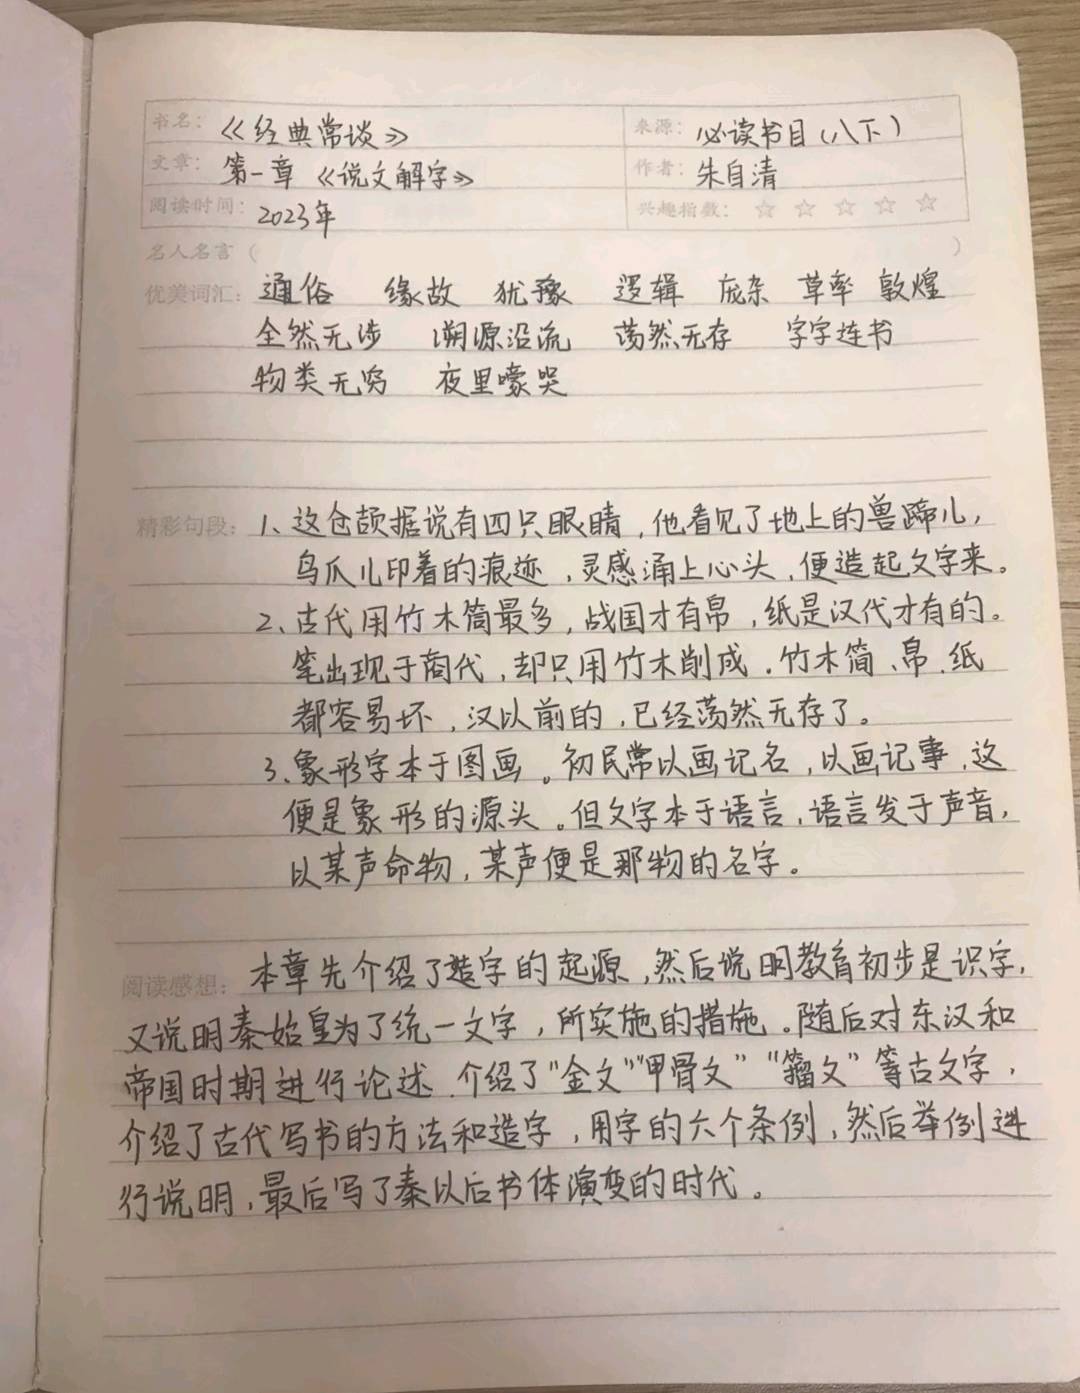 书名：《经典常谈》 来源：必读书目（八下）
文章：第一章《说文解字》 作者：朱自清
阅读时间：2023年 兴趣指数：☆ ☆ ☆ ☆ ☆
名人名言（ ）
优美词汇：通俗 缘故 犹豫 逻辑 庞杂 草率 敦煌
全然无涉 溯源沿流 荡然无存 字字连书
物类无穷 夜里嚎哭
精彩句段：1、这仓颉据说有四只眼睛，他看见了地上的兽蹄儿，
鸟爪儿印着的痕迹，灵感涌上心头，便造起文字来。
2、古代用竹木简最多，战国才有帛，纸是汉代才有的。
笔出现于商代，却只用竹木削成．竹木简、帛、纸
都容易坏，汉以前的，已经荡然无存了。
3、象形字本于图画。初民常以画记名，以画记事，这
便是象形的源头。但文字本于语言，语言发于声音，
以某声命物，某声便是那物的名字。
阅读感想：本章先介绍了造字的起源，然后说明教育初步是识字，
又说明秦始皇为了统一文字，所实施的措施。随后对东汉和
帝国时期进行论述．介绍了“金文”“甲骨文”“籀文”等古文字，
介绍了古代写书的方法和造字，用字的六个条例，然后举例进
行说明，最后写了秦以后书体演变的时代。